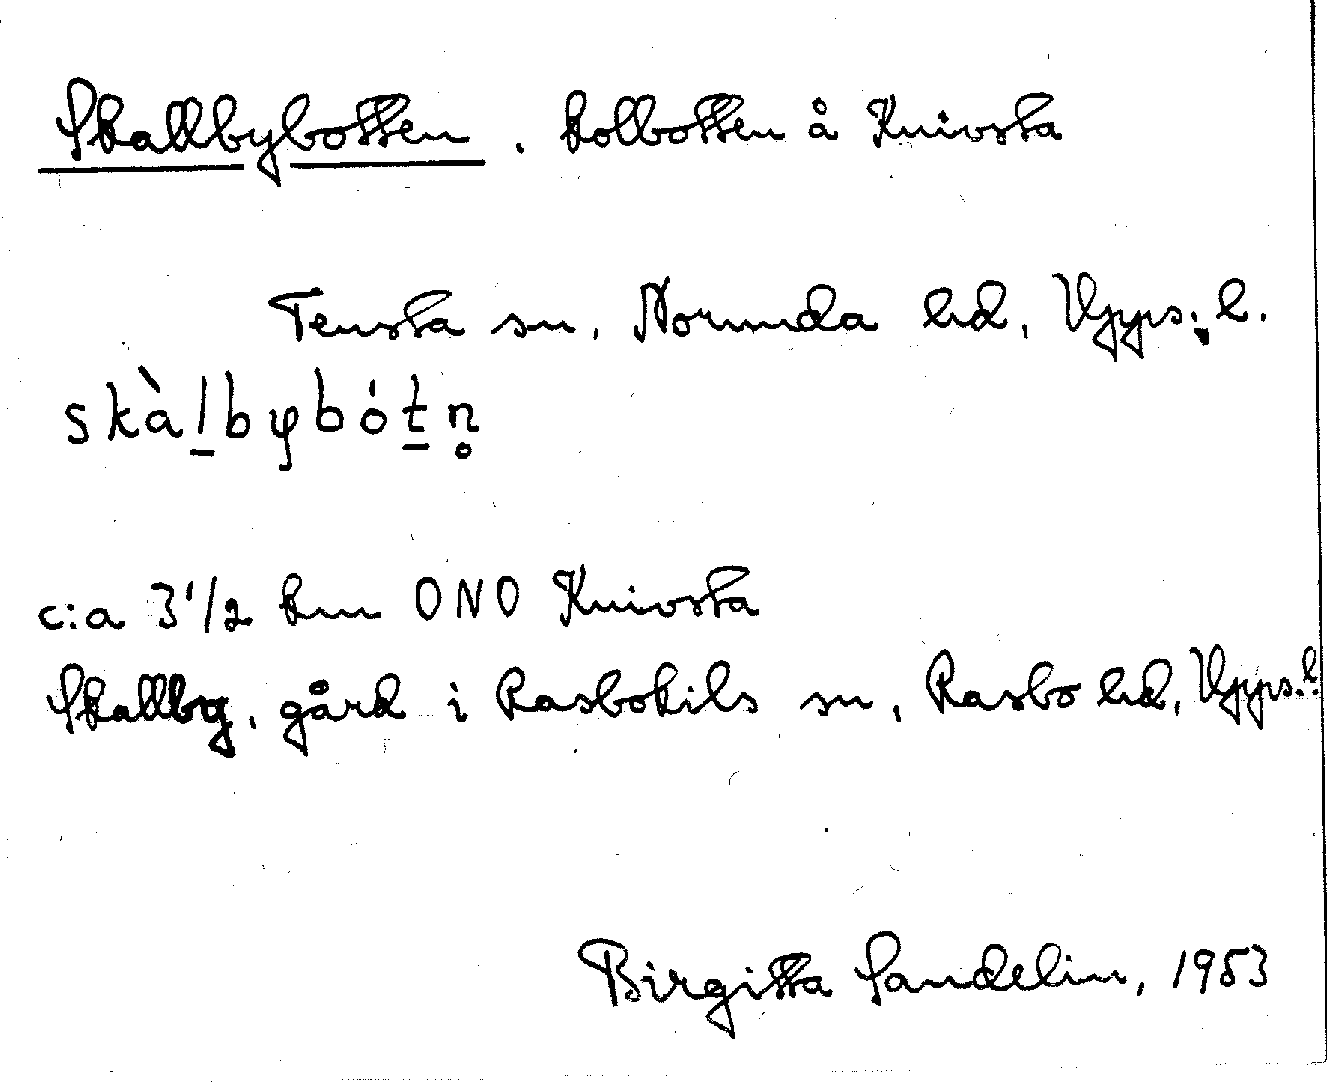 Skallbybotten, kolbotten å Knivsta
Tensta sn, Norunda hd, Upps. l.
skàlbybótn̥
c:a 3 1/2 km ONO Knivsta
Skallby, gård i Rasbokils sn, Rasbo hd, Upps. l.
Birgitta Sandelin, 1953